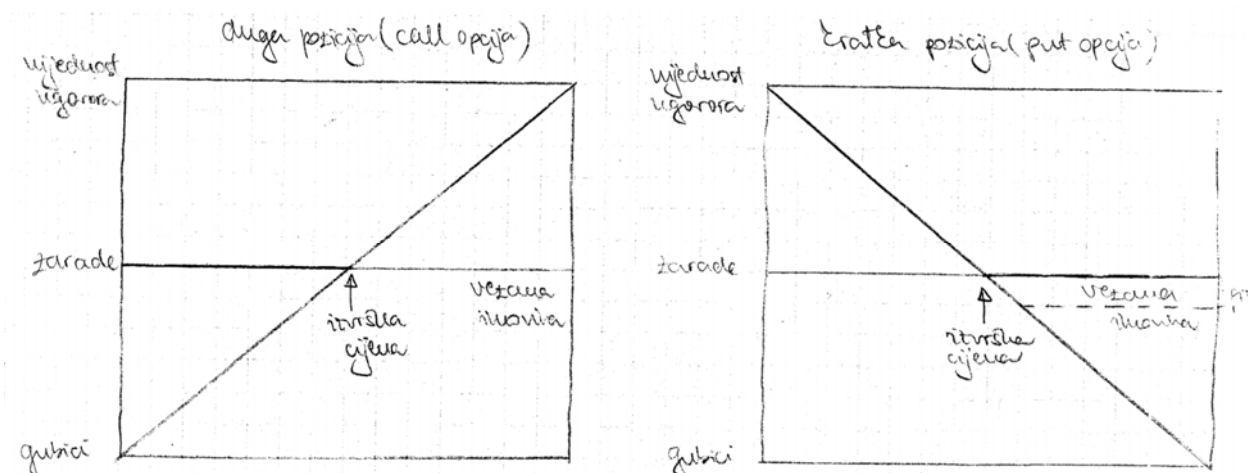 duga pozicija (call opcija)
vrijednost
ugovora
zarade
vezana
imovina
izvršna
cijena
gubici
kratka pozicija (put opcija)
vrijednost
ugovora
zarade
vezana
imovina
izvršna
cijena
gubici